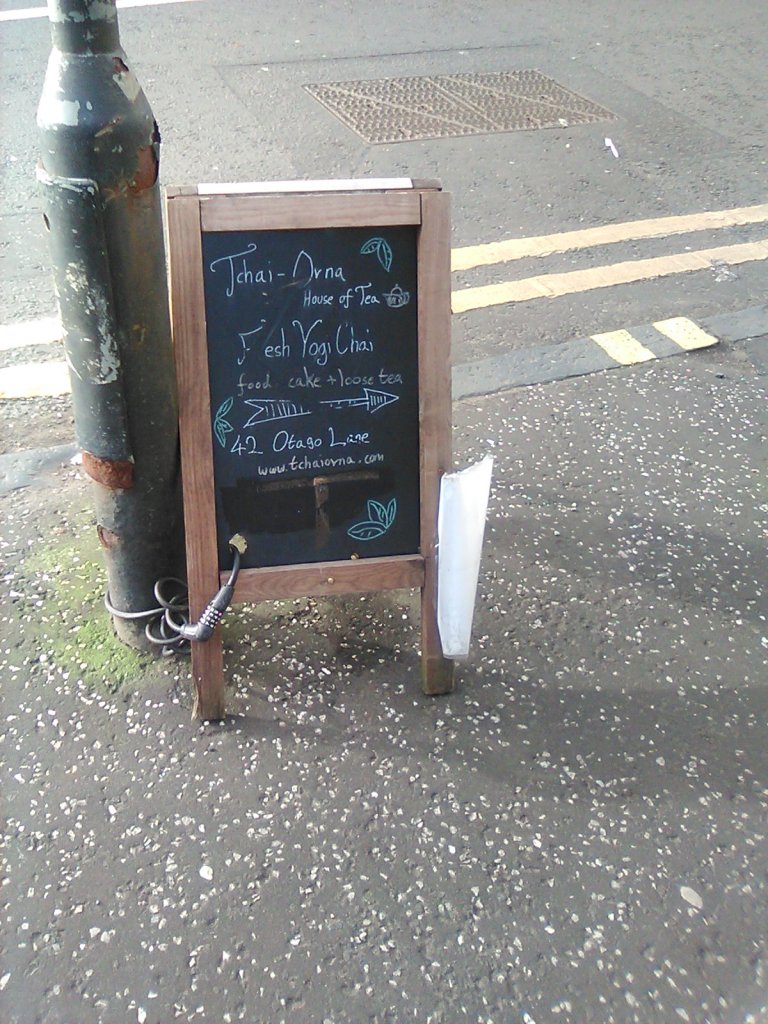 Tchai-Orna
House of Tea
F esh Yogi Chai
food. cake + loose tea
42 Otago Lane
www.tchaiovna.com